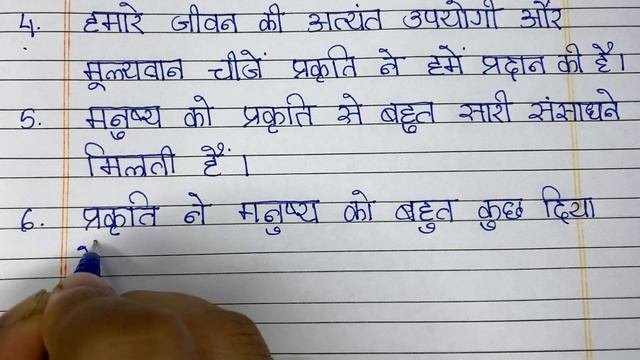 4. हमारे जीवन की अत्यंत उपयोगी और
मूल्यवान चीजें प्रकृति ने हमें प्रदान की है।
5. मनुष्य को प्रकृति से बहुत सारी संसाधने
मिलती हैं।
6. प्रकृति ने मनुष्य को बहुत कुछ दिया